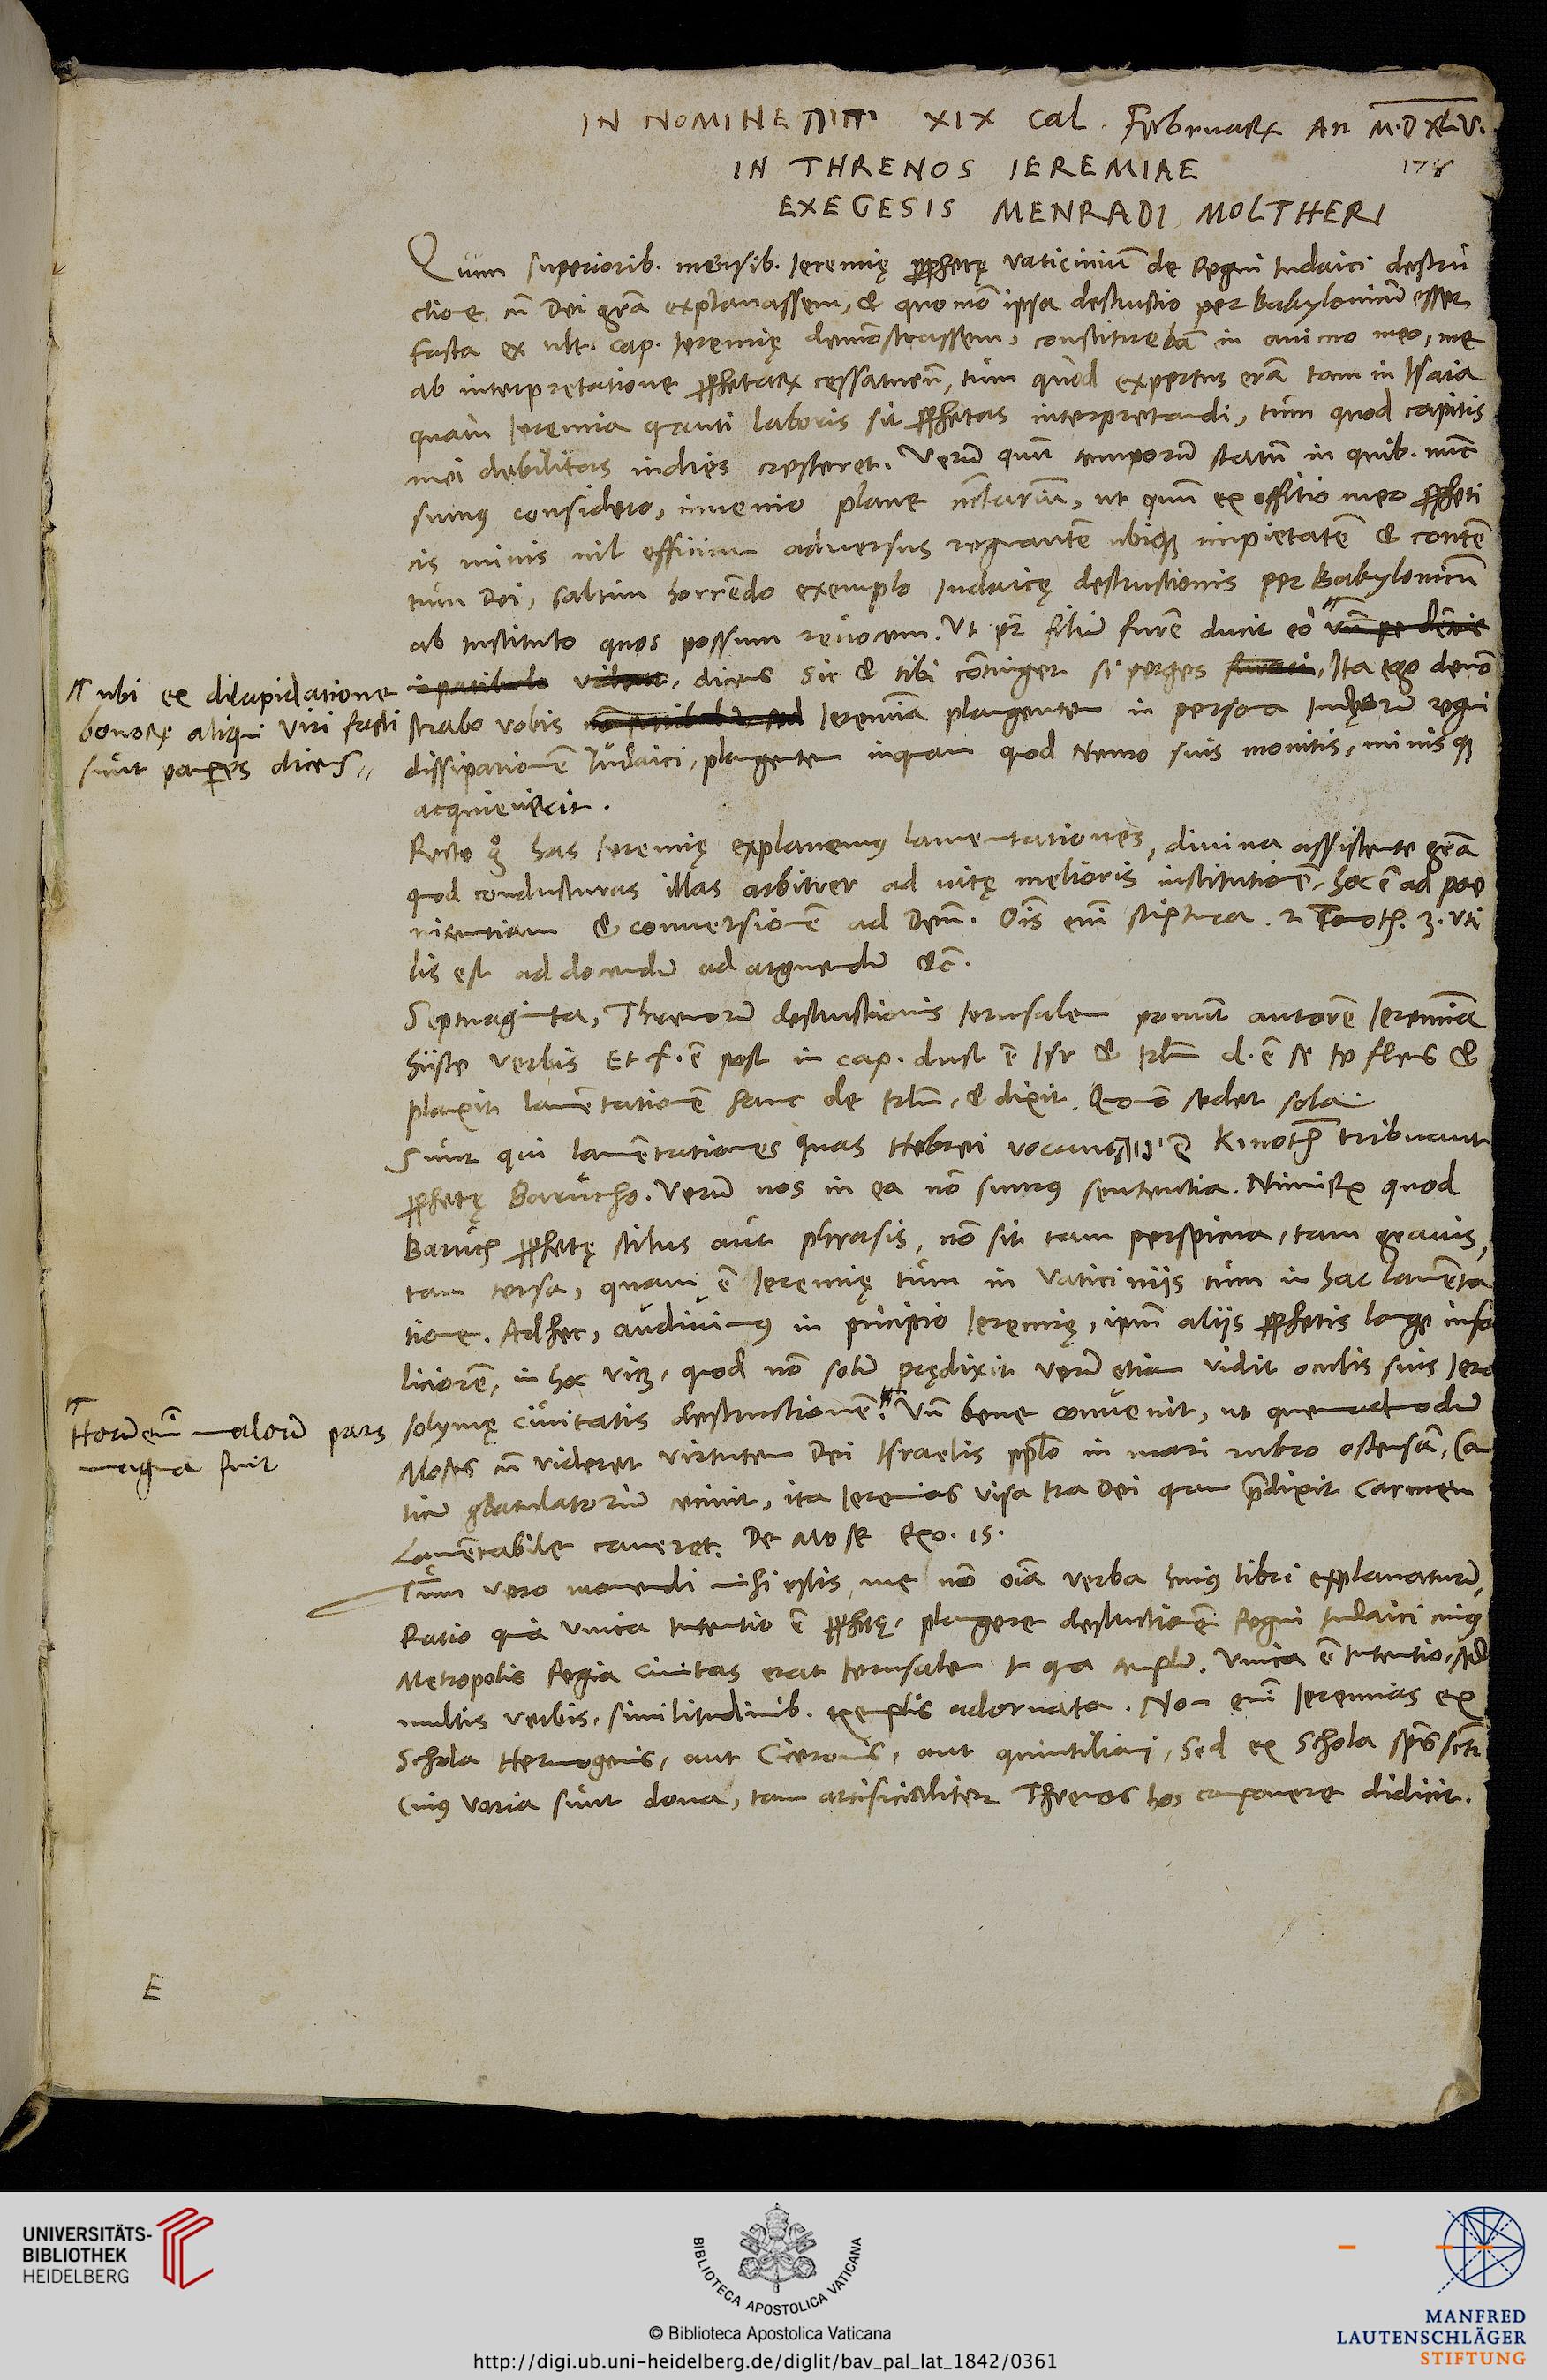 IN NOMINE יהוה XIX Cal. Februarꝝ An M.D.XLV.
178
IN THRENOS IEREMIAE
EXEGESIS MENRADI MOLTHERI
Quum superiorib. mensib. Ieremię ꝓphetę vaticiniū de Regni Iudaici destru
ctione, cū Dei grā explanassem, & quomō ipsa destructio per Babylonicū esset
facta ex ult. cap. Ieremię demōstrassem, constituebā in animo meo, me
ab interpretatione ꝓphetarꝝ cessaturū, tum quod expertus erā tam in Isaia
quam Ieremia quanti laboris sit ꝓphetas interpretandi, tum quod capitis
mei debilitas indies cresceret. Verū quū temporū statū in quib. nūc
sumus considero, invenio plane nc̄ſariū, ut quū ex offitio meo ꝓpheti
cis minis nil efficiam adversus regnantē ubiqꝫ impietatē & contē
tum Dei, saltim horrēdo exemplo Iudaicę destructionis per Babylonicū
ab instituto quos possum revocem. Ut pr̄ filiū furē ducit eo
dicens Sic & tibi cōtinget si perges furari, Ita ego demō
strabo vobis Ieremiā plangentem in persona Iudęorū regni
dissipationē Iudaici, plangentem inquam quod Nemo suis monitis, minisqꝫ
acquieverit.
ubi ex dilapidatione
bonorꝝ aliqui viri facti
sunt paupes dicens
Recte g̊ has Ieremię explanemꝰ lamentationes, divina assistente grā
quod conducturas illas arbitrer ad vitę melioris institutionē, hoc ē ad poe
nitentiam & conversionē ad Deū. Oīs enī scriptura. 2. Timoth. 3. uti
lis est ad docendū ad arguendū &c̄.
Septuaginta, Threnorū destructionis Ierusalem ponunt autorē Ieremiā
hisce verbis Et f. ē post in cap. duct ē Isr & Irlm̄ d. ē se ie flens &
planxit lamētationē hanc de Irlm̄, & dixit. Quomō sedet sola.
Sunt qui lamētationes quas Hebrei vocant קינות Kinoth tribuant
ꝓphetę Barucho. Verū nos in ea nō sumꝰ sententia. Nimirꝝ quod
Baruch ꝓphetę stilus aut phrasis, nō sit tam perspicua, tam gravis,
tam tersa, quam ē Ieremię tum in vaticiniis tum in hac lamēta
tione. Adhec, audivimꝰ in pricipio Ieremię, ipm̄ aliis ꝓphetis longe infe
liciorē, in hoc vicꝫ. quod nō solū prędixit verū etiam vidit oculis suis Iero
solymę civitatis destructionē. Vn̄ bene convenit, ut quemadmodū
Horū enī malorū pars
magna fuit
Moses cū videret virtutem Dei Israelis pplo in mari rubro ostensā, Can
ticū gratulatoriū cecinit, ita Ieremias visa Ira Dei quam p̄dixit Carmen
Lamētabile caneret. De Mose Exo. 15.
Tum vero monendi mihi estis me nō oīa verba huiꝰ libri explanaturū,
Ratio quia unica Intentio ē ꝓphetę, plangere destructionē Regni Iudaici cuiꝰ
Metropolis Regia Civitas erat Ierusalem I qua templū. Unica ē Intentio, sed
multis verbis, similitudinib. exemplis adornata. Non enī Ieremias ex
Schola Hermogenis, aut Ciceronis, aut Quintiliani, Sed ex Schola sp̄s sc̄ti
Cuiꝰ varia sunt dona, tam artificialiter Threnos hos componere didicit.
E
UNIVERSITÄTS-
BIBLIOTHEK
HEIDELBERG
BIBLIOTECA APOSTOLICA VATICANA
© Biblioteca Apostolica Vaticana
http://digi.ub.uni-heidelberg.de/diglit/bav_pal_lat_1842/0361
MANFRED
LAUTENSCHLÄGER
STIFTUNG